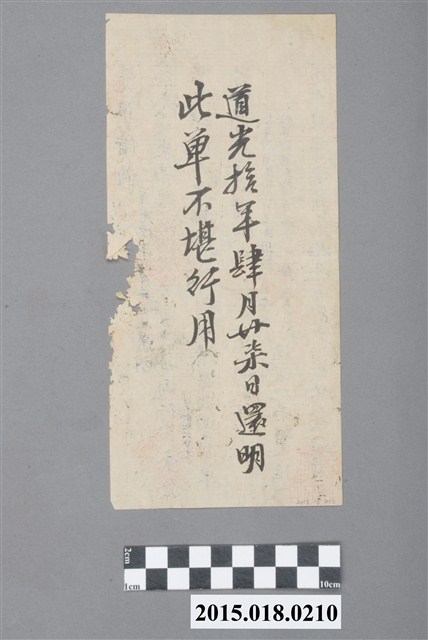 道光拾年肆月廿柒日還明
此单不堪行用
2cm
1cm
10cm
2015.018.0210